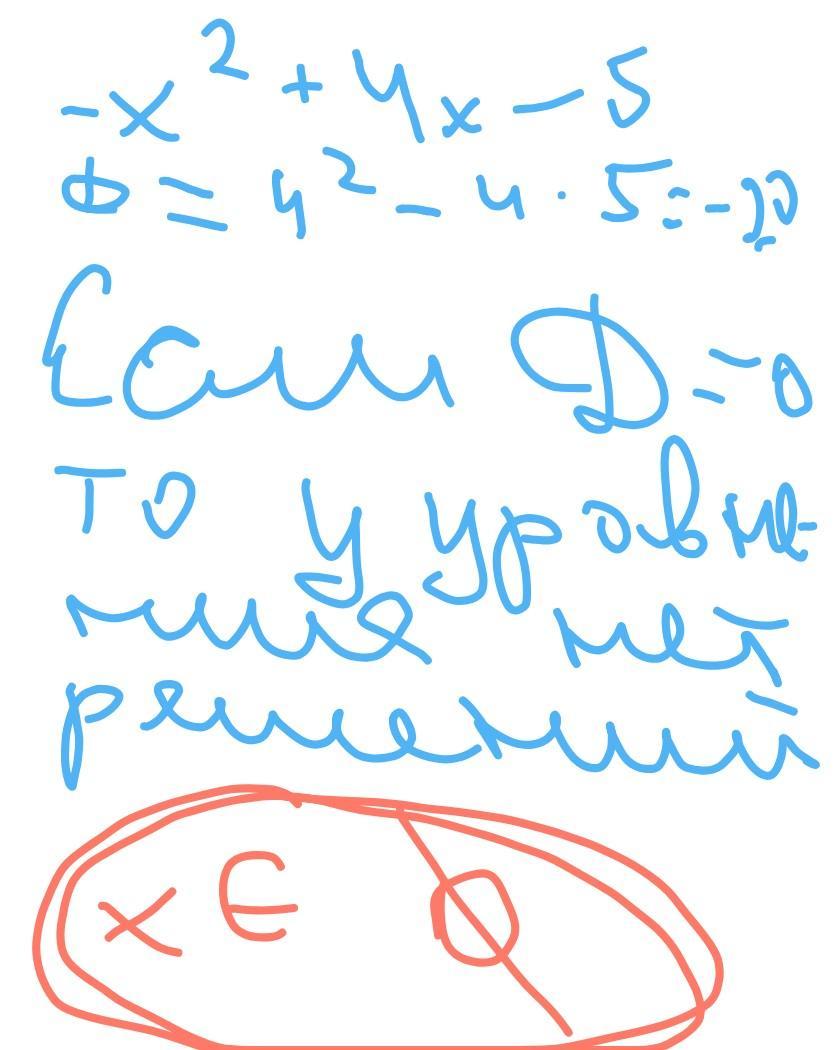 -x² + 4x - 5
D = 4² - 4 · 5 = -20
Если D = 0
то у уравне-
ния нет
решений
x ∈ ∅